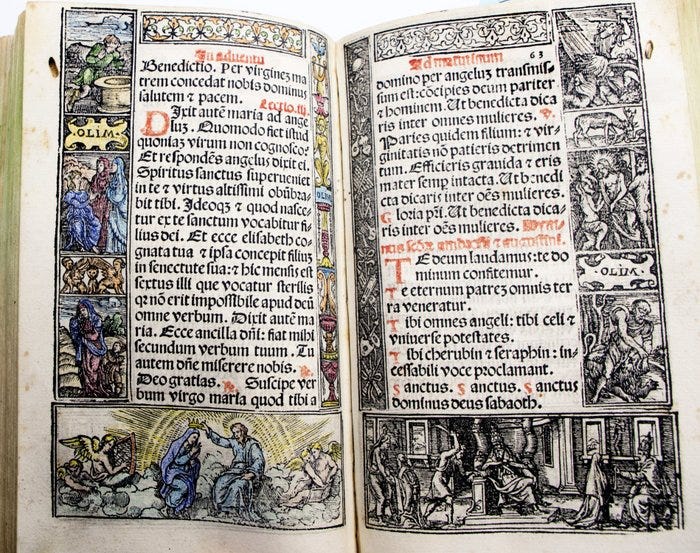 In aduentu
OLIM
Benedictio. Per virginez ma
trem concedat nobis dominus
salutem ⁊ pacem. Lectio.iij.
Dixit autē maria ad ange
luz. Quomodo fiet istud
quoniaz virum non cognosco?
Et respondēs angelus dixit ei.
Spiritus sanctus superueniet
in te ⁊ virtus altissimi obūbra
bit tibi. Ideoqz ⁊ quod nasce
tur ex te sanctum vocabitur fi
lius dei. Et ecce elisabeth co
gnata tua ⁊ ipsa concepit filium
in senectute sua: ⁊ hic mensis est
sextus illi que vocatur sterilis
qr nō erit impossibile apud deū
omne verbum. Dixit autē ma
ria. Ecce ancilla dn̄i: fiat mihi
secundum verbum tuum. Tu
autem dn̄e miserere nobis.
Deo gratias. ℟. Suscipe ver
bum virgo maria quod tibi a
Ad matutinum 63
domino per angeluz transmis-
sum est: cōcipies deum pariter
⁊ hominem. Ut benedicta dica
ris inter omnes mulieres. ℣.
Paries quidem filium: ⁊ vir-
ginitatis nō patieris detrimen
tum. Efficieris grauida ⁊ eris
mater semp intacta. Ut bene
cta dicaris inter oēs mulieres.
Gloria pr̄i. Ut benedicta dica-
ris inter oēs mulieres.
Te deum laudamus: te do
minum confitemur.
Te eternum patrez omnis ter
ra veneratur.
Tibi omnes angeli: tibi celi ⁊
vniuerse potestates.
Tibi cherubin ⁊ seraphin: in-
cessabili voce proclamant.
Sanctus. Sanctus. Sanctus
dominus deus sabaoth.
OLIM